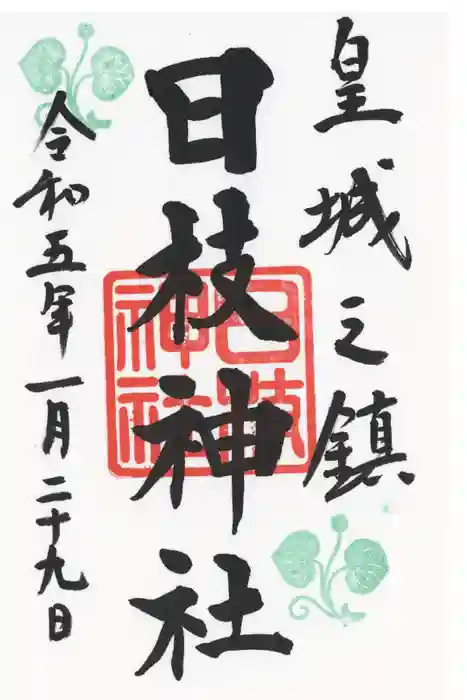 皇城之鎮
日枝神社
日枝神社
令和五年一月二十九日